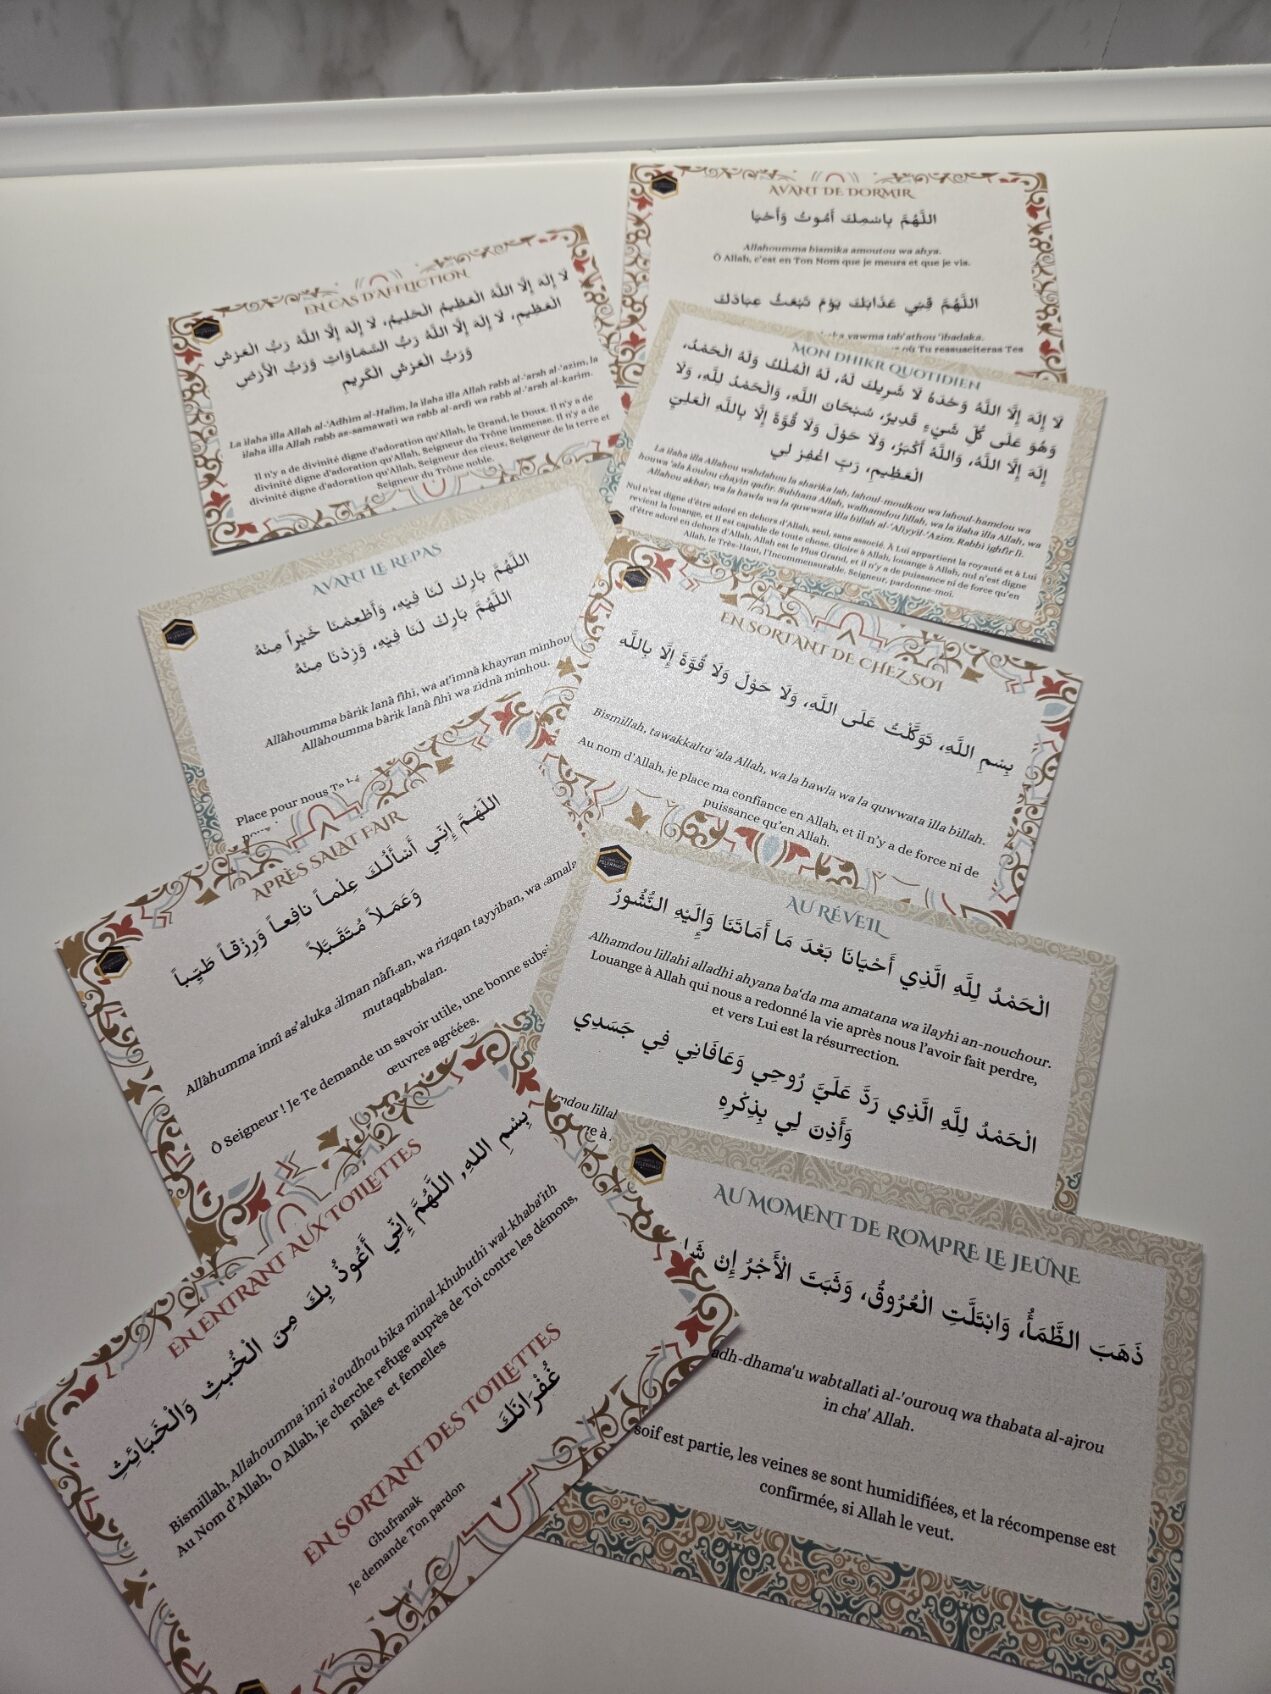 AVANT DE DORMIR
اللَّهُمَّ بِاسْمِكَ أَمُوتُ وَأَحْيَا
Allahoumma bismika amoutou wa ahya.
Ô Allah, c'est en Ton Nom que je meurs et que je vis.
اللَّهُمَّ قِنِي عَذَابَكَ يَوْمَ تَبْعَثُ عِبَادَكَ
yawma tab'athou 'ibadaka.
où Tu ressusciteras Tes
EN CAS D'AFFLICTION
لَا إِلَهَ إِلَّا اللَّهُ الْعَظِيمُ الْحَلِيمُ، لَا إِلَهَ إِلَّا اللَّهُ رَبُّ الْعَرْشِ
الْعَظِيمِ، لَا إِلَهَ إِلَّا اللَّهُ رَبُّ السَّمَاوَاتِ وَرَبُّ الْأَرْضِ
وَرَبُّ الْعَرْشِ الْكَرِيمِ
La ilaha illa Allah al-'Adhim al-Halim, la ilaha illa Allah rabb al-'arsh al-'azim, la
ilaha illa Allah rabb as-samawati wa rabb al-ardi wa rabb al-'arsh al-karim.
Il n'y a de divinité digne d'adoration qu'Allah, le Grand, le Doux. Il n'y a de
divinité digne d'adoration qu'Allah, Seigneur du Trône immense. Il n'y a de
divinité digne d'adoration qu'Allah, Seigneur des cieux, Seigneur de la terre et
Seigneur du Trône noble.
MON DHIKR QUOTIDIEN
لَا إِلَهَ إِلَّا اللَّهُ وَحْدَهُ لَا شَرِيكَ لَهُ، لَهُ الْمُلْكُ وَلَهُ الْحَمْدُ،
وَهُوَ عَلَى كُلِّ شَيْءٍ قَدِيرٌ، سُبْحَانَ اللَّهِ، وَالْحَمْدُ لِلَّهِ، وَلَا
إِلَهَ إِلَّا اللَّهُ، وَاللَّهُ أَكْبَرُ، وَلَا حَوْلَ وَلَا قُوَّةَ إِلَّا بِاللَّهِ الْعَلِيِّ
الْعَظِيمِ، رَبِّ اغْفِرْ لِي
La ilaha illa Allahou wahdahou la sharika lah, lahoul-moulkou wa lahoul-hamdou wa
houwa 'ala koulou chayin qadir. Subhana Allah, walhamdou lillah, wa la ilaha illa Allah, wa
Allahou akbar, wa la hawla wa la quwwata illa billah al-'Aliyyil-'Azim. Rabbi ighfir li.
Nul n'est digne d'être adoré en dehors d'Allah, seul, sans associé. À Lui appartient la royauté et à Lui
revient la louange, et Il est capable de toute chose. Gloire à Allah, louange à Allah, nul n'est digne
d'être adoré en dehors d'Allah, Allah est le Plus Grand, et il n'y a de puissance ni de force qu'en
Allah, le Très-Haut, l'Incommensurable. Seigneur, pardonne-moi.
AVANT LE REPAS
اللَّهُمَّ بَارِكْ لَنَا فِيْهِ، وَأَطْعِمْنَا خَيْراً مِنْهُ
اللَّهُمَّ بَارِكْ لَنَا فِيْهِ، وَزِدْنَا مِنْهُ
Allâhoumma bârik lanâ fîhi, wa at'imnâ khayran minhou
Allâhoumma bârik lanâ fîhi wa zidnâ minhou.
Place pour nous
EN SORTANT DE CHEZ SOI
بِسْمِ اللَّهِ، تَوَكَّلْتُ عَلَى اللَّهِ، وَلَا حَوْلَ وَلَا قُوَّةَ إِلَّا بِاللَّهِ
Bismillah, tawakkaltu 'ala Allah, wa la hawla wa la quwwata illa billah.
Au nom d'Allah, je place ma confiance en Allah, et il n'y a de force ni de
puissance qu'en Allah.
APRÈS SALAT FAJR
اللَّهُمَّ إِنِّي أَسْأَلُكَ عِلْماً نَافِعاً وَرِزْقاً طَيِّباً
وَعَمَلاً مُتَقَبَّلاً
Allâhumma innî as'aluka 'ilman nâfi'an, wa rizqan tayyiban, wa 'amala
mutaqabbalan.
Ô Seigneur ! Je Te demande un savoir utile, une bonne subs
œuvres agréées.
AU RÉVEIL
الْحَمْدُ لِلَّهِ الَّذِي أَحْيَانَا بَعْدَ مَا أَمَاتَنَا وَإِلَيْهِ النُّشُورُ
Alhamdou lillahi alladhi ahyana ba'da ma amatana wa ilayhi an-nouchour.
Louange à Allah qui nous a redonné la vie après nous l'avoir fait perdre,
et vers Lui est la résurrection.
الْحَمْدُ لِلَّهِ الَّذِي رَدَّ عَلَيَّ رُوحِي وَعَافَانِي فِي جَسَدِي
وَأَذِنَ لِي بِذِكْرِهِ
EN ENTRANT AUX TOILETTES
بِسْمِ اللهِ, اللَّهُمَّ إِنِّي أَعُوذُ بِكَ مِنَ الْخُبثِ وَالْخَبَائِثِ
Bismillah, Allahoumma inni a'oudhou bika minal-khubuthi wal-khaba'ith
Au Nom d'Allah, O Allah, je cherche refuge auprès de Toi contre les démons,
mâles et femelles
EN SORTANT DES TOILETTES
غُفْرَانَكَ
Ghufranak
Je demande Ton pardon
AU MOMENT DE ROMPRE LE JEÛNE
ذَهَبَ الظَّمَأُ، وَابْتَلَّتِ الْعُرُوقُ، وَثَبَتَ الْأَجْرُ إِنْ
adh-dhama'u wabtallati al-'ourouq wa thabata al-ajrou
in cha' Allah.
soif est partie, les veines se sont humidifiées, et la récompense est
confirmée, si Allah le veut.